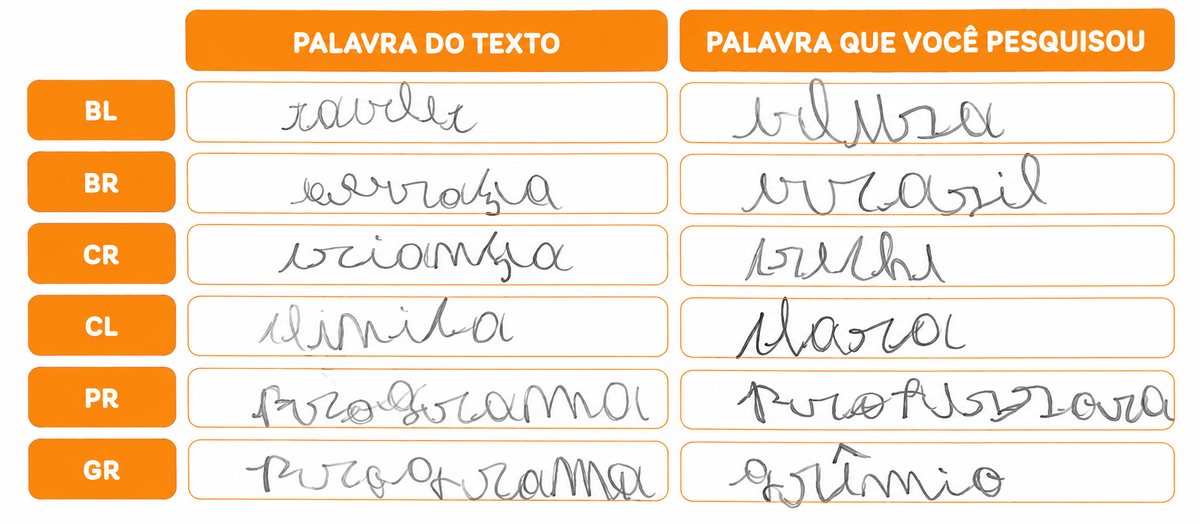 PALAVRA DO TEXTO PALAVRA QUE VOCÊ PESQUISOU
BL blusa
BR abraça brasil
CR criança creche
CL clínica clara
PR programa professora
GR programa grêmio